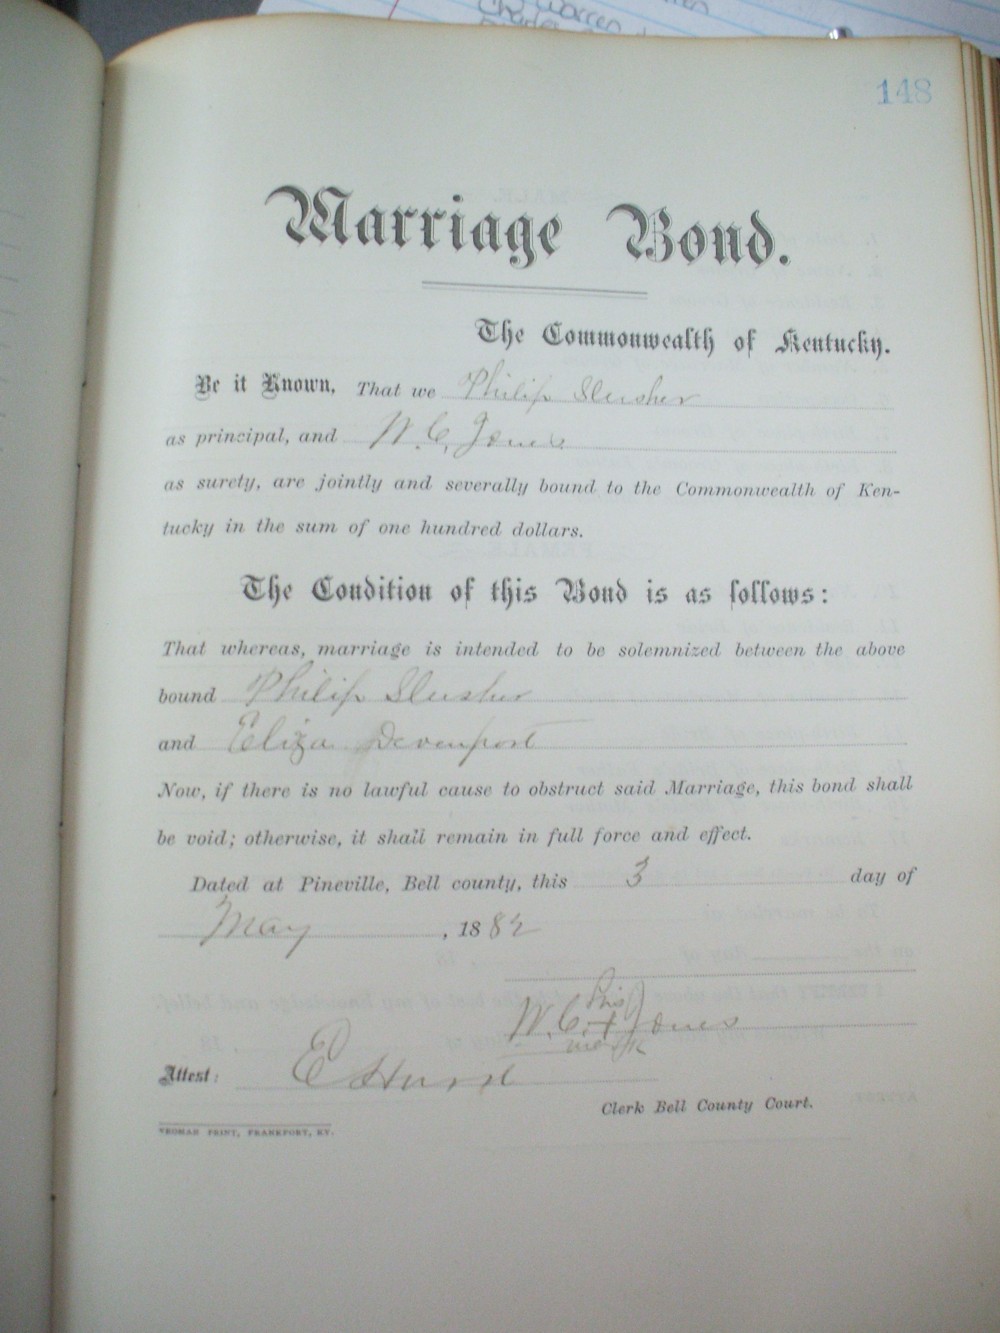 Warren
148
Marriage Bond.
The Commonwealth of Kentucky.
Be it Known, That we Philip Slusher
as principal, and W. C. Jones
as surety, are jointly and severally bound to the Commonwealth of Ken-
tucky in the sum of one hundred dollars.
The Condition of this Bond is as follows:
That whereas, marriage is intended to be solemnized between the above
bound Philip Slusher
and Eliza Devenport
Now, if there is no lawful cause to obstruct said Marriage, this bond shall
be void; otherwise, it shall remain in full force and effect.
Dated at Pineville, Bell county, this 3 day of
May, 1882
his
W. C. + Jones
mark
Attest: E Hurst
Clerk Bell County Court.
YEOMAN PRINT, FRANKFORT, KY.